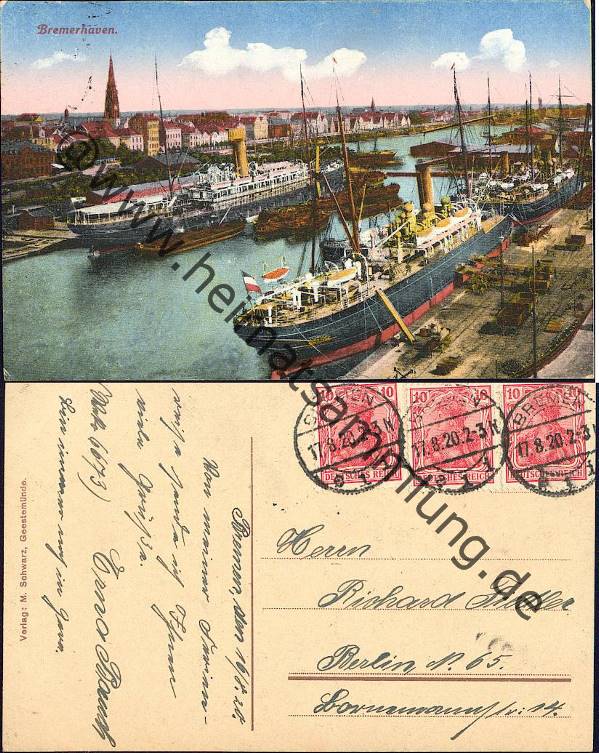 Bremerhaven.
@www.heimatsammlung.de
10 10 10 10
DEUTSCHES REICH DEUTSCHES REICH DEUTSCHES REICH
BREMEN
17.8.20.2-3N
1
BREMEN
17.8.20.2-3N
1
BREMEN
17.8.20.2-3N
1
Bremen, den 16/8.20.
Von meiner Ferien-
reise sende ich Ihnen
viele Grüße.
Erna
Verlag: M. Schwarz, Geestemünde.
Herrn
Richard
Berlin, N. 65.
Bornemannstr. 14.